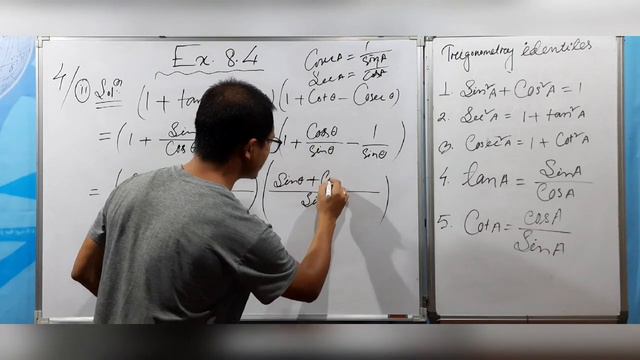 Ex. 8.4
Cosec A = 1/Sin A
Sec A = 1/Cos A
4/ (ii) Solⁿ
(1 + tan (1 + Cot θ − Cosec θ)
= (1 + Sin / Cos θ 1 + Cos θ/Sin θ − 1/Sin θ)
= ( ) (Sin θ +
Trigonometry identities
1. Sin²A + Cos²A = 1
2. Sec²A = 1 + tan²A
3. Cosec²A = 1 + Cot²A
4. tan A = Sin A/Cos A
5. Cot A = Cos A/Sin A